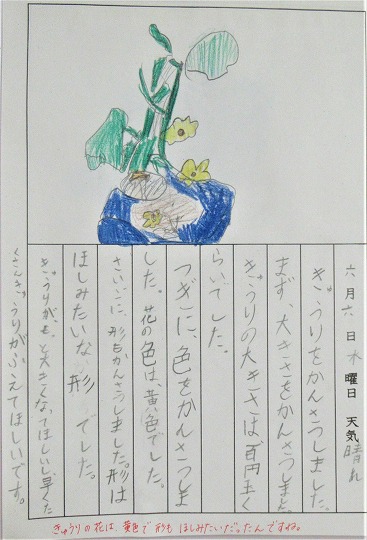 六月六日水曜日 天気 晴れ
きゅうりをかんさつしました。
まず、大きさをかんさつしました。
きゅうりの大きさは百円玉く
らいでした。
つぎに、色をかんさつしま
した。花の色は、黄色でした。
さいごに、形もかんさつしました。形は
ほしみたいな形でした。
きゅうりがもっと大きくなってほしいし早くた
くさんきゅうりがふえてほしいです。
きゅうりの花は、黄色で形もほしみたいだったんですね。